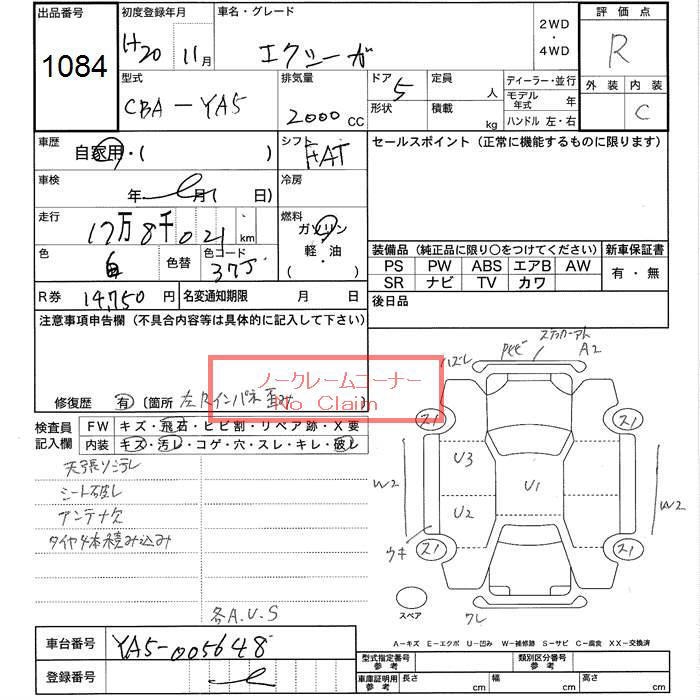 出品番号 初度登録年月 車名・グレード 評価点
1084 H20 11月 エクシーガ 2WD・4WD R
型式 排気量 ドア形状 定員 ディーラー・並行 外装 内装
CBA-YA5 2000 CC 5 人 モデル年式 年 C
積載 kg ハンドル 左・右
車歴 自家用・( ) シフト FAT セールスポイント（正常に機能するものに限ります）
車検 年 月( 日) 冷房
走行 17万8千021 km 燃料 ガソリン・軽油 ( )
色 白 色替 色コード 37J
装備品（純正品に限り○をつけてください） 新車保証書
PS PW ABS エアB AW 有・無
SR ナビ TV カワ
R券 14,750 円 名変通知期限 月 日 後日品
注意事項申告欄（不具合内容等は具体的に記入して下さい）
ノークレームコーナー
No Claim
修復歴 有 〔箇所 左Rインパネ歪み 〕
検査員記入欄 FW キズ・飛石・ヒビ割・リペア跡・X要
内装 キズ・汚レ・コゲ・穴・スレ・キレ・破レ
天張リ汚レ
シート破レ
アンテナ欠
タイヤ4本積み込み
各A.U.S
ハズレ A2
ス1 ス1
U3
W2 U1 W2
U2
ウキ ス1 ス1
スペア ワレ
A-キズ E-エクボ U-凹み W-補修跡 S-サビ C-腐食 XX-交換済
車台番号 YA5-005648
登録番号
型式指定番号 参考 類別区分番号 参考
車庫証明用 参考 長さ cm 幅 cm 高さ cm